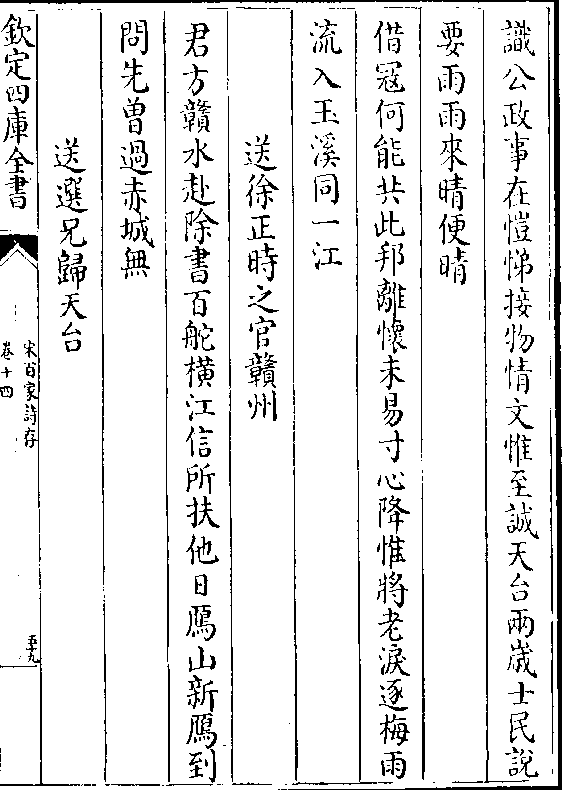 識公政事在愷悌接物情文惟至誠天台兩歲士民說
要雨雨來晴便晴
借冦何能共此邦離懷未易寸心降惟將老淚逐梅雨
流入玉溪同一江
送徐正時之官贛州
君方贛水赴除書百舵横江信所扶他日鴈山新鴈到
問先曽過赤城無
送選兄歸天台
欽定四庫全書
宋百家詩存
卷十四
五九